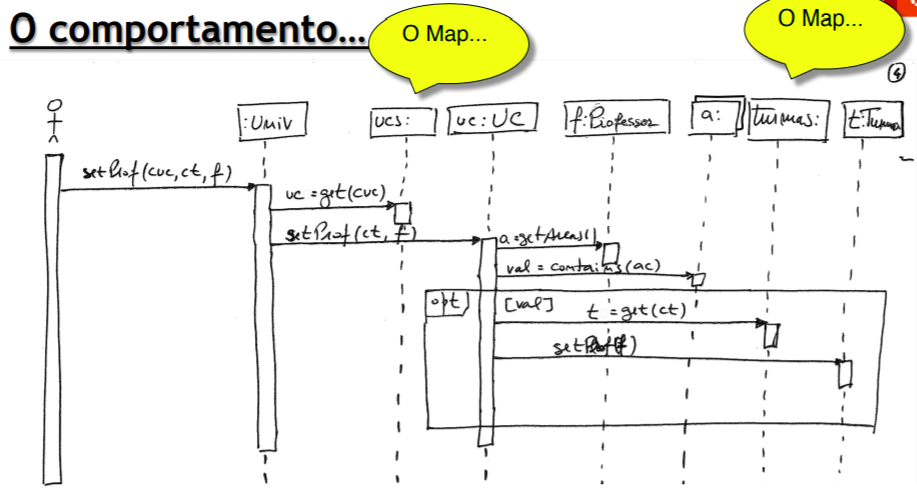 O comportamento...
O Map...
O Map...
4
:Univ
ucs:
uc:UC
f:Professor
a:
turmas:
t:Turma
setProf(cuc,ct,f)
uc=get(cuc)
setProf(ct, f)
a=getAreas()
val=contains(ac)
opt
[val]
t=get(ct)
setProf(f)